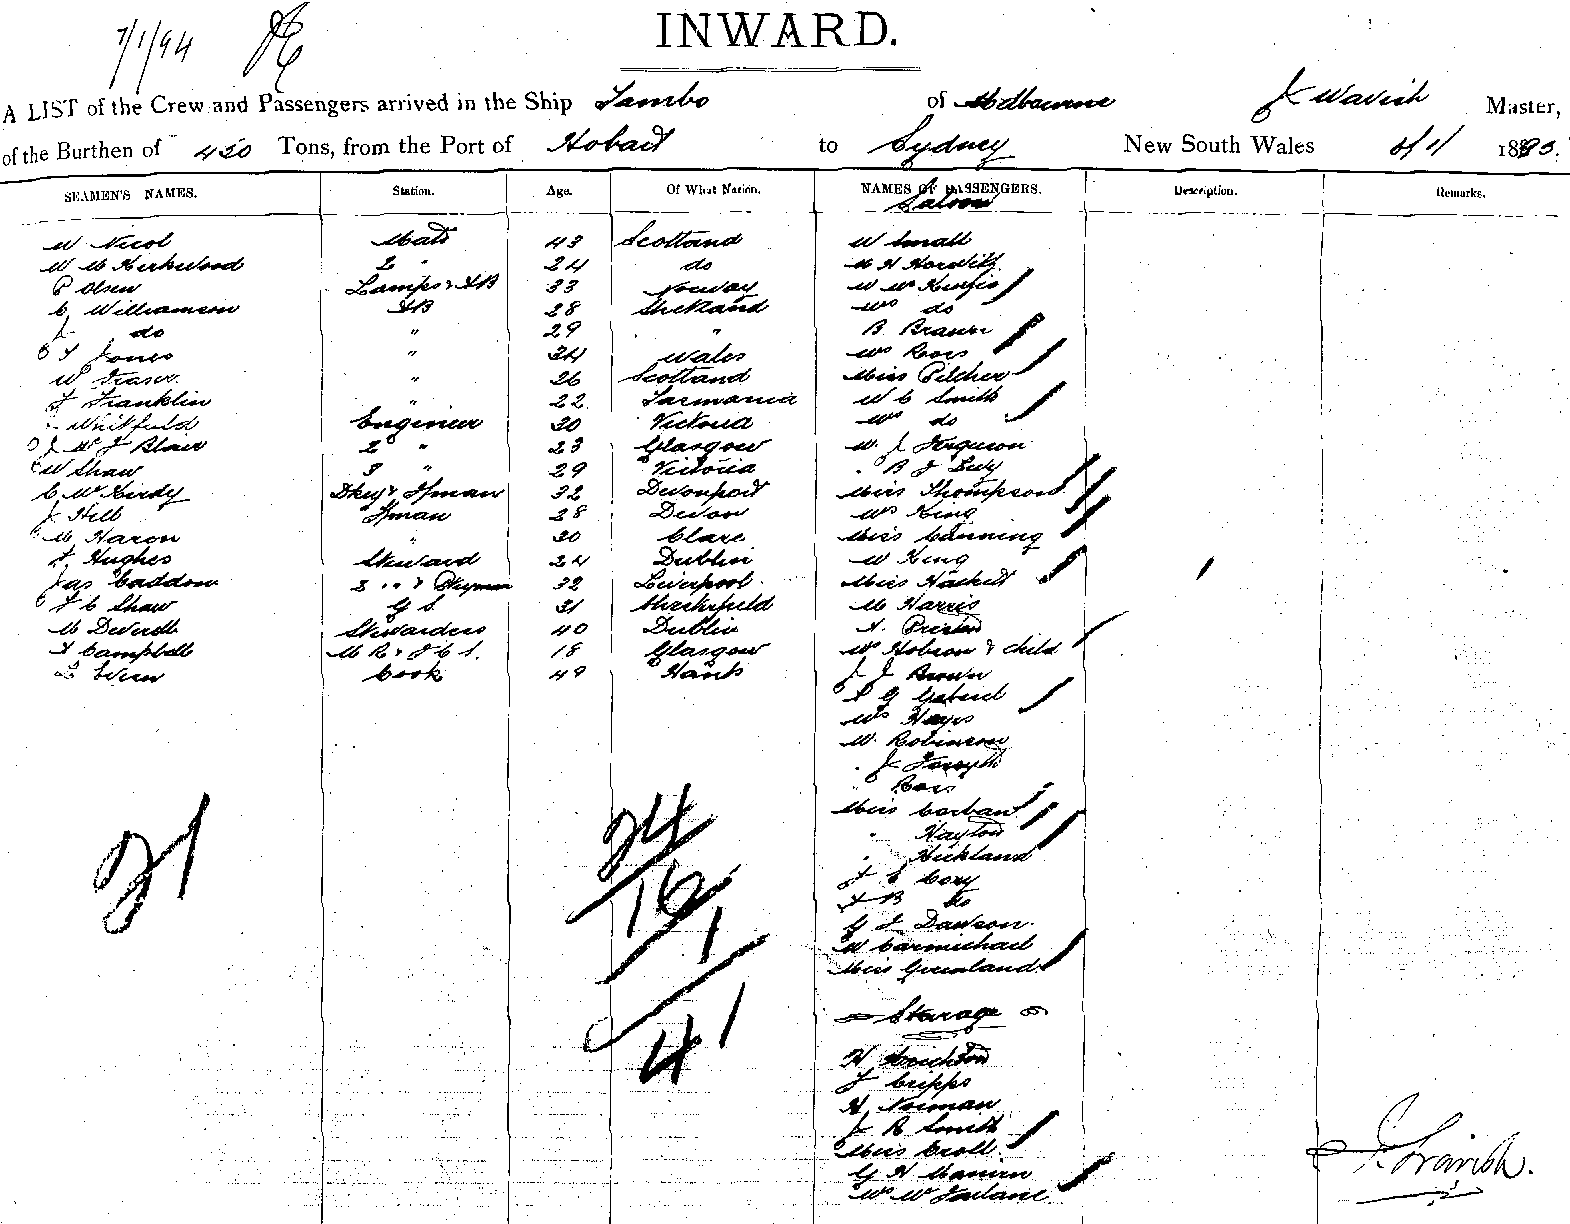 7/1/94
INWARD.
A LIST of the Crew and Passengers arrived in the Ship Tambo of Melbourne J Wavish Master,
of the Burthen of 450 Tons, from the Port of Hobart to Sydney New South Wales 1893.
SEAMEN'S NAMES. Station. Age. Of What Nation. NAMES OF PASSENGERS. Description. Remarks.
Saloon
W Nicol Mate 43 Scotland W Small
W M Kirkwood 2 " 24 do M H Horwitz
P Olsen Lamps & AB 33 Norway
C Williamson AB 28 Shetland do
J do " 29 " B
T Jones " 34 Wales Mrs Ross
W Fraser " 26 Scotland Miss Pilcher
F Franklin " 22 Tasmania W C Smith
Whitfield Engineer 30 Victoria Mrs do
J W J Blair 2 " 23 Glasgow W. J Ferguson
W Shaw 3 " 29 Victoria B J
C McKirdy Dkey & Fman 32 Devonport Miss Thompson
J Hill Fman 38 Devon Mrs King
M Haron " 30 Clare Miss Canning
Hughes Steward 24 Dublin W King
Jas Caddon 2 " & 32 Liverpool Miss Hackett
J C Shaw G S 31 M Harris
M Deverell Stewardess 40 Dublin A. Preston
A Campbell 18 Glasgow Mrs Hobson & child
Cook 49 Hants J J Brown
A G Gabriel
Mrs Hayes
W. Robinson
" J Forsyth
" Ross
Miss Corban
" Hayton
" Hickland
J E Cory
do
G J Dawson
W Carmichael
Miss Greenland
21
24
16
1
41
Starage
H
J Cripps
H Norman
J R Smith
Miss Croll
G H